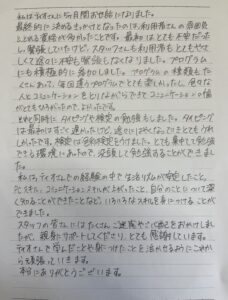 私はディオさんに5ヶ月間お世話になりました。
最終的に決めるきっかけとなったのは利用者さんの雰囲気
とても不安だった
し、緊張していたけど、スタッフさんも利用者もとてもやさ
しくて逆に不安も緊張もなくなりました。プログラム
にも積極的に参加しました。プログラムの種類もた
くさんあって、毎回違うプログラムでとても楽しかったし、色々な
人とコミュニケーションをとりながらできてコミュニケーションの幅
がとてもひろがったのでよかったです。
それと同時に、タイピングや検定の勉強もしました。タイピング
は最初はすごく遅かったけど、逆に
しかったです。検定は合格をとても集中して勉強
できる環境にあったので、没頭して勉強することができま
した。
私はディオさんでの経験の中で生活リズムが安定したこと、
PCスキル、コミュニケーションスキルが上がったこと、自分のことについて深
く知ることができたことなど、いろいろなスキルを身につけることが
できました。
スタッフの皆さんにはたくさんご迷惑やご心配をおかけしまし
たが、親身にサポートしてくださり、とても感謝しています。
ディオさんで学んだことや身につけたことを活かせるようにこれか
らも頑張っていきます。
本当にありがとうございます。